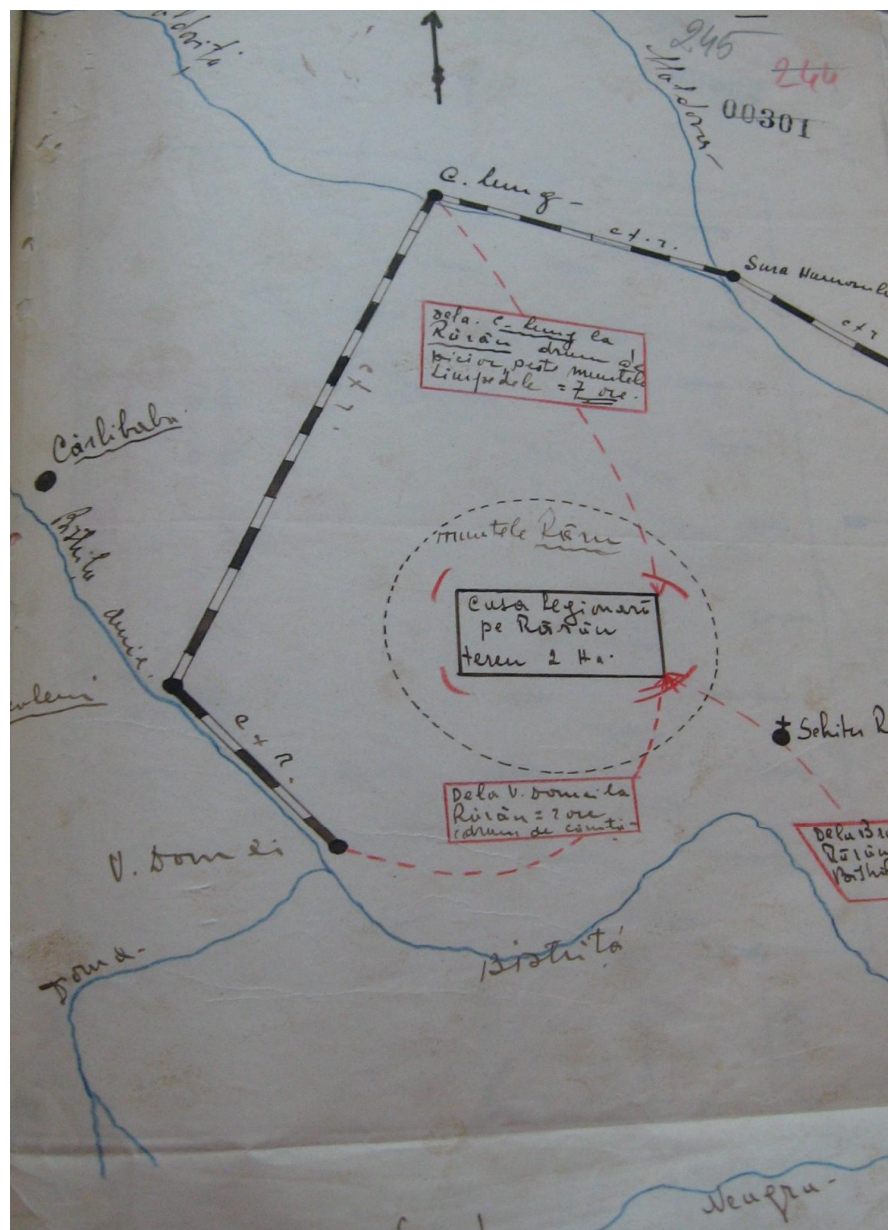 245
244
00301
Moldova
C. lung
c f. r.
Gura Humorului
c f r
Dela C-lung la
Rărău drum de
picior peste muntele
Limpedele = 7 ore.
c f r.
Cârlibaba
Bistrița aurie.
muntele Rărău
Casa Legionară
pe Rărău
teren 2 Ha.
c f R.
Schitu R
Dela V. Dornei la
Rărău = 7 ore
V. Dornei
Dorna
Bistrița
Neagra